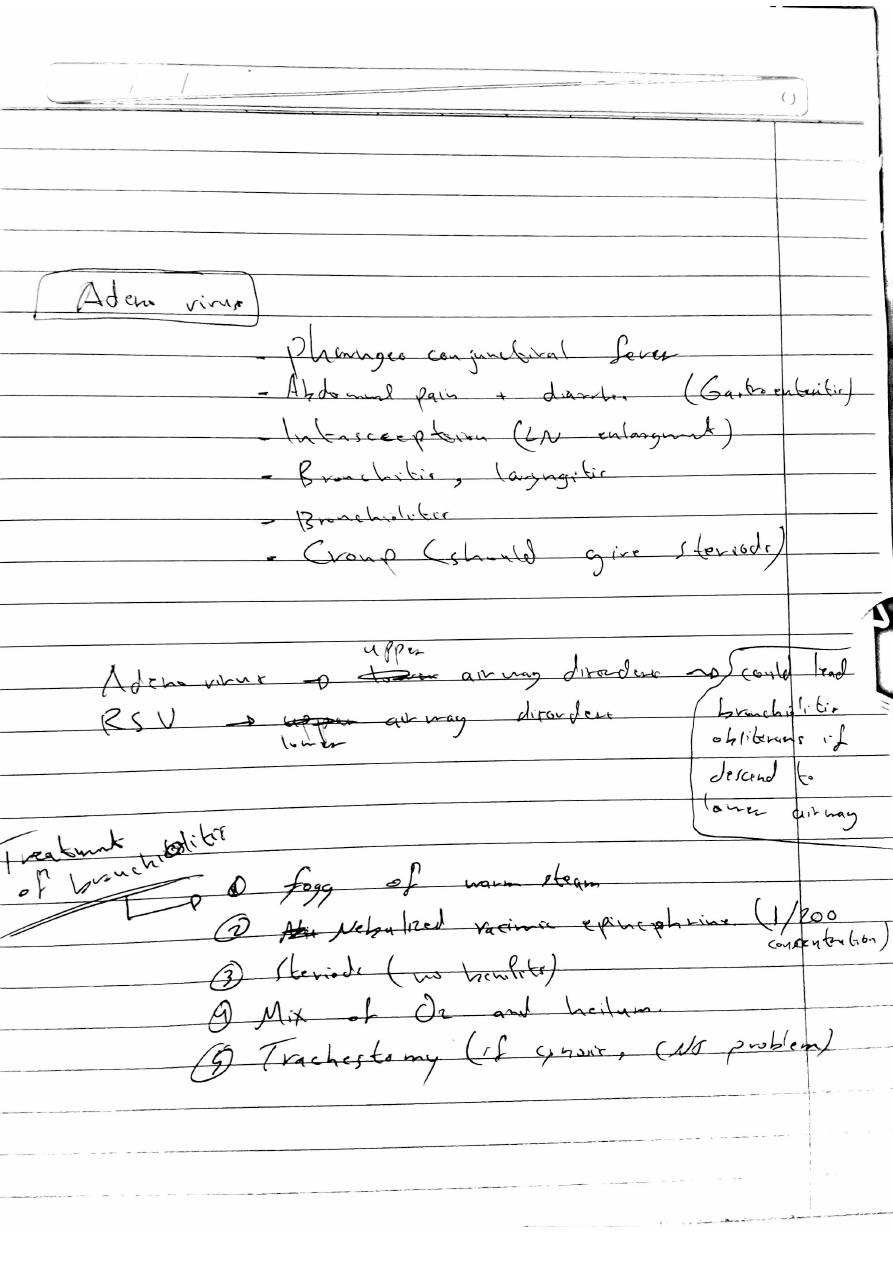 Adeno virus
- Pharyngeo conjunctival fever
- Abdominal pain + diarrhea (Gastroenteritis)
- Intusception (LN enlargment)
- Bronchitis, laryngitis
- Bronchiolitis
- Croup (should give steriods)
Adeno virus → upper airway disorders → could lead
bronchiolitis
obliterans if
descend to
lower airway
RSV → upper airway disorders
lower
Treatment
of bronchiolitis
① fogg of warm steam
② Nebulized racimic epinephrine (1/200
concentration)
③ Steriods (no benefits)
④ Mix of O2 and heilum.
⑤ Trachestomy (if CNS problem)